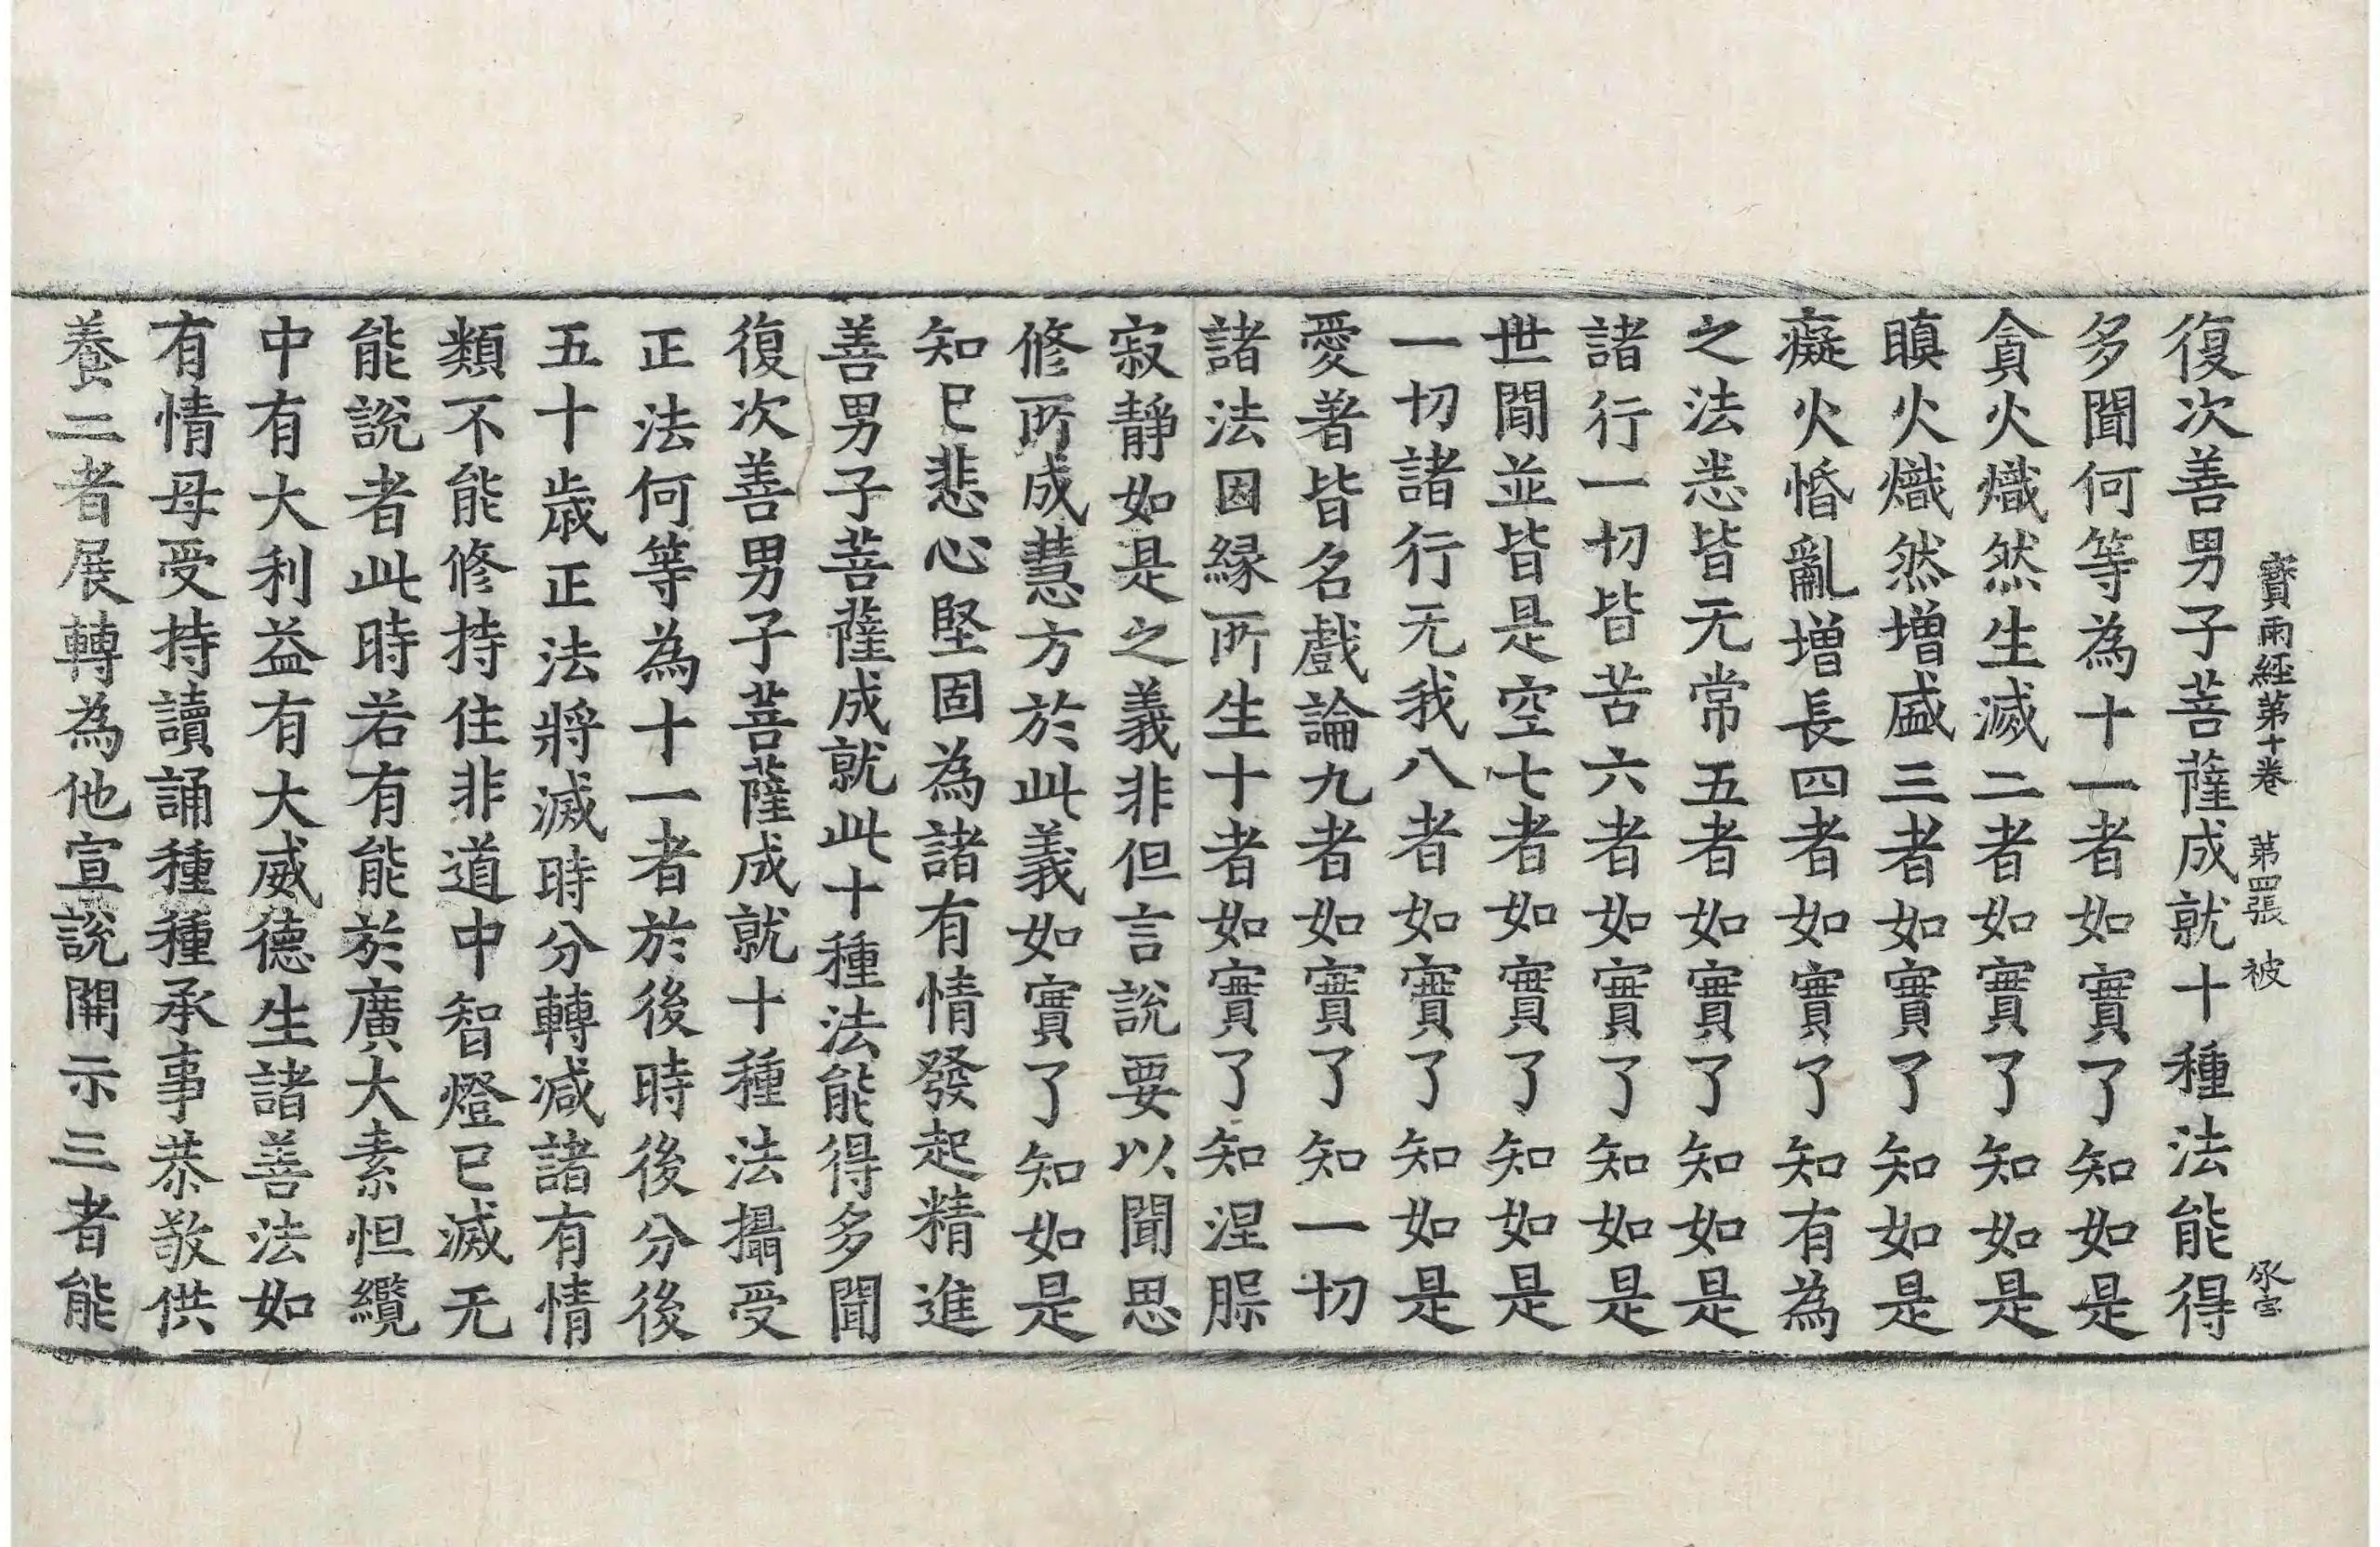 寶雨經第十卷　第四張　被
復次善男子菩薩成就十種法能得
多聞何等為十一者如實了知如是
貪火熾然生滅二者如實了知如是
瞋火熾然增盛三者如實了知如是
癡火惛亂增長四者如實了知有為
之法恙皆无常五者如實了知如是
諸行一切皆苦六者如實了知如是
世間並皆是空七者如實了知如是
一切諸行无我八者如實了知如是
愛著皆名戲論九者如實了知一切
諸法因緣所生十者如實了知涅槃
寂靜如是之義非但言說要以聞思
修所成慧方於此義如實了知如是
知已悲心堅固為諸有情發起精進
善男子菩薩成就此十種法能得多聞
復次善男子菩薩成就十種法攝受
正法何等為十一者於後時後分後
五十歲正法將滅時分轉減諸有情
類不能修持住非道中智燈已滅无
能說者此時若有能於廣大素怛纜
中有大利益有大威德生諸善法如
有情母受持讀誦種種承事恭敬供
養二者展轉為他宣說開示三者能